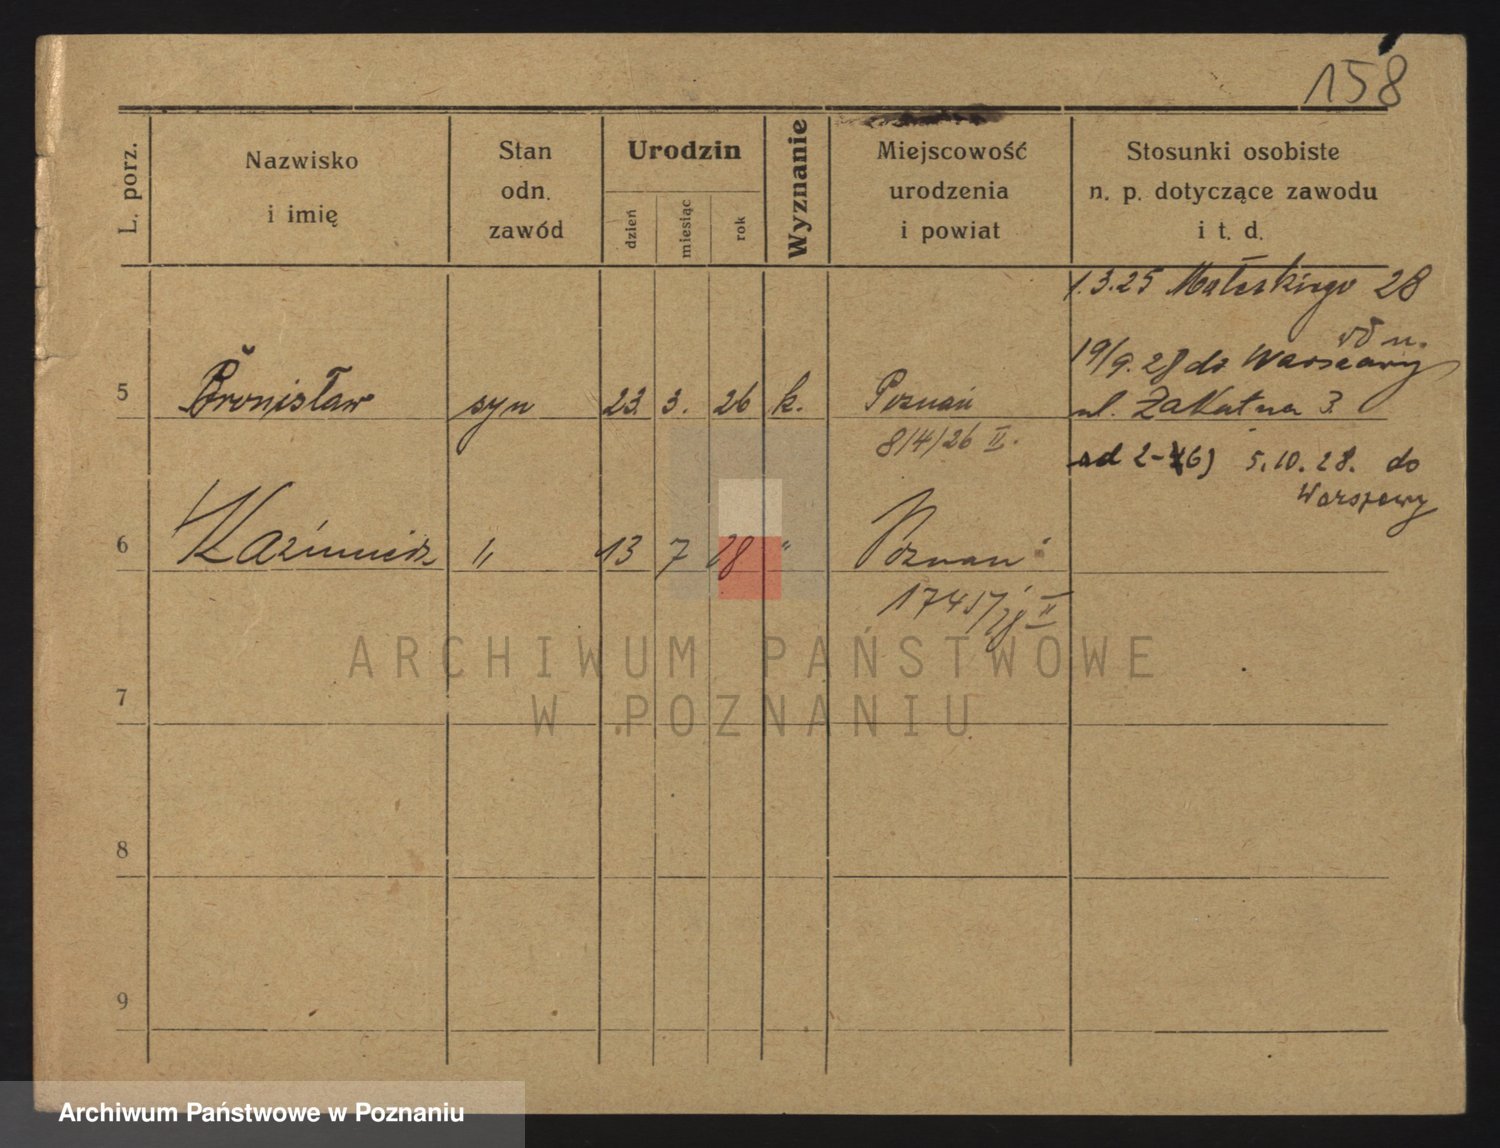 158
L. porz.
Nazwisko
i imię
Stan
odn.
zawód
Urodzin
dzień
miesiąc
rok
Wyznanie
Miejscowość
urodzenia
i powiat
Stosunki osobiste
n. p. dotyczące zawodu
i t. d.
1.3.25 Małeckiego 28
19/9.28 do Warszawy
ul. Zakatna 3.
5 Bronisław syn 23 3. 26 k. Poznań
8/4/26 II.
ad 2-(6) 5.10.28. do
Warszawy
6 Kazimierz " 13 7 28 " Poznań
28 II
7
8
9
ARCHIWUM PAŃSTWOWE
W POZNANIU
Archiwum Państwowe w Poznaniu